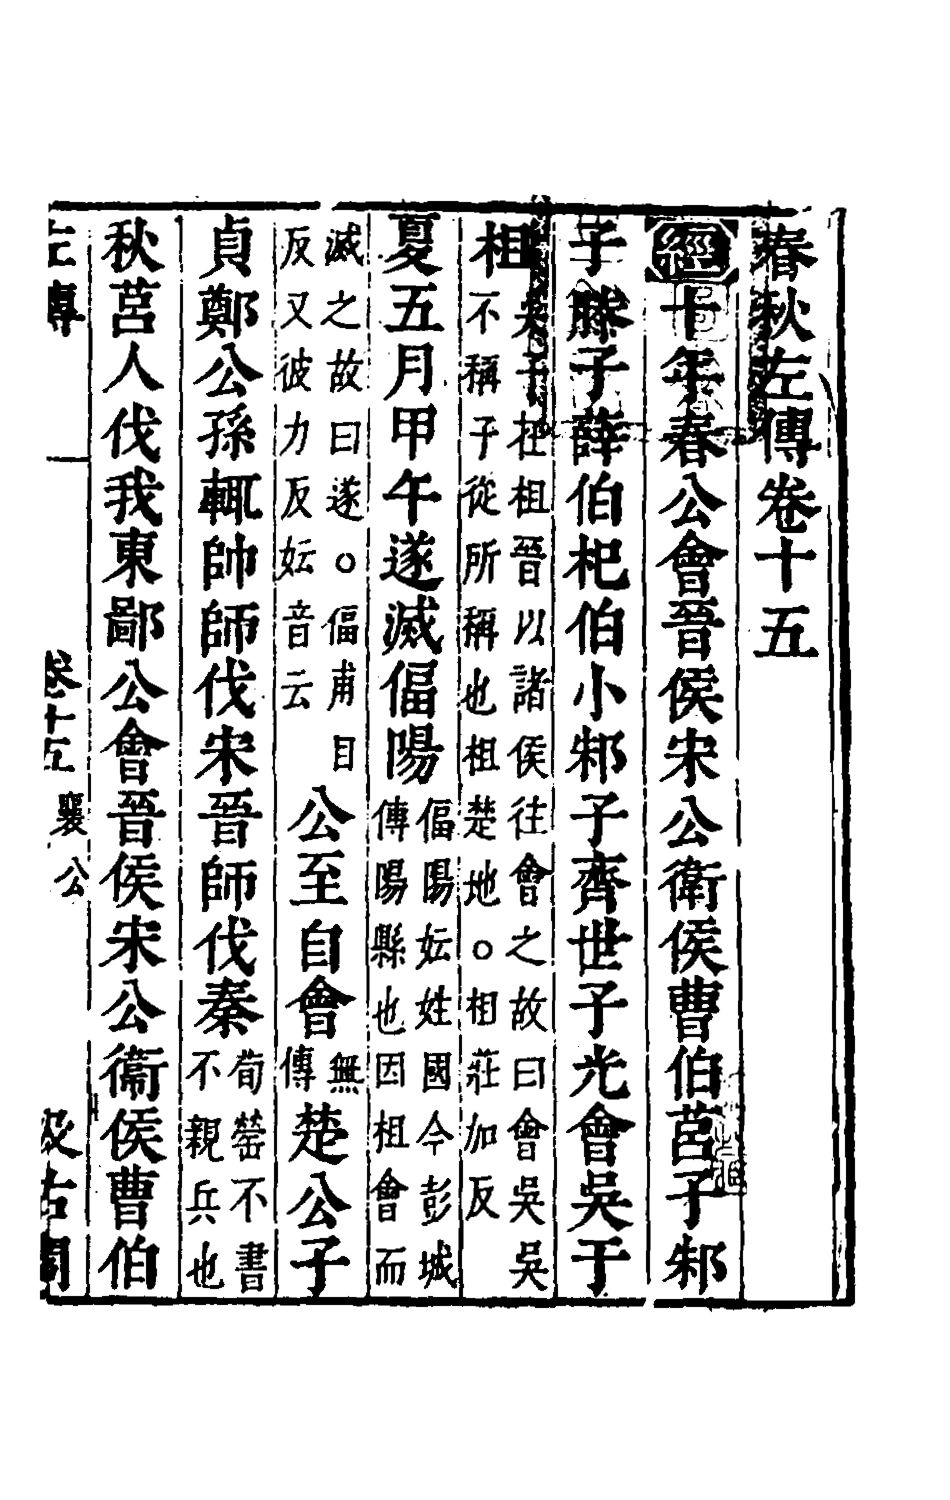 春秋左傳卷十五
經十年春公會晉侯宋公衛侯曹伯莒子邾
子滕子薛伯杞伯小邾子齊世子光會吳于
柤
吳子在柤晉以諸侯往會之故曰會吳吳
不稱子從所稱也柤楚地○柤莊加反
夏五月甲午遂滅偪陽
偪陽妘姓國今彭城
傅陽縣也因柤會而
滅之故曰遂○偪甫目
反又彼力反妘音云
公至自會
無
傳
楚公子
貞鄭公孫輒帥師伐宋晉師伐秦
荀罃不書
不親兵也
秋莒人伐我東鄙公會晉侯宋公衞侯曹伯
左傳 卷十五 襄公 汲古閣